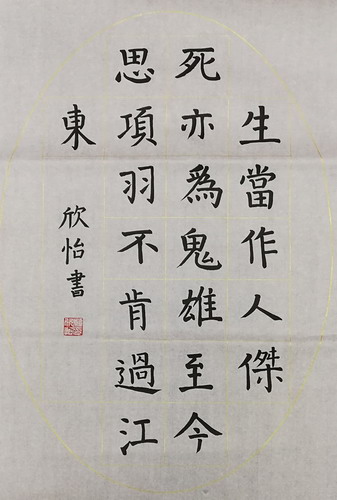 生當作人傑
死亦爲鬼雄至今
思項羽不肯過江
東
欣怡書